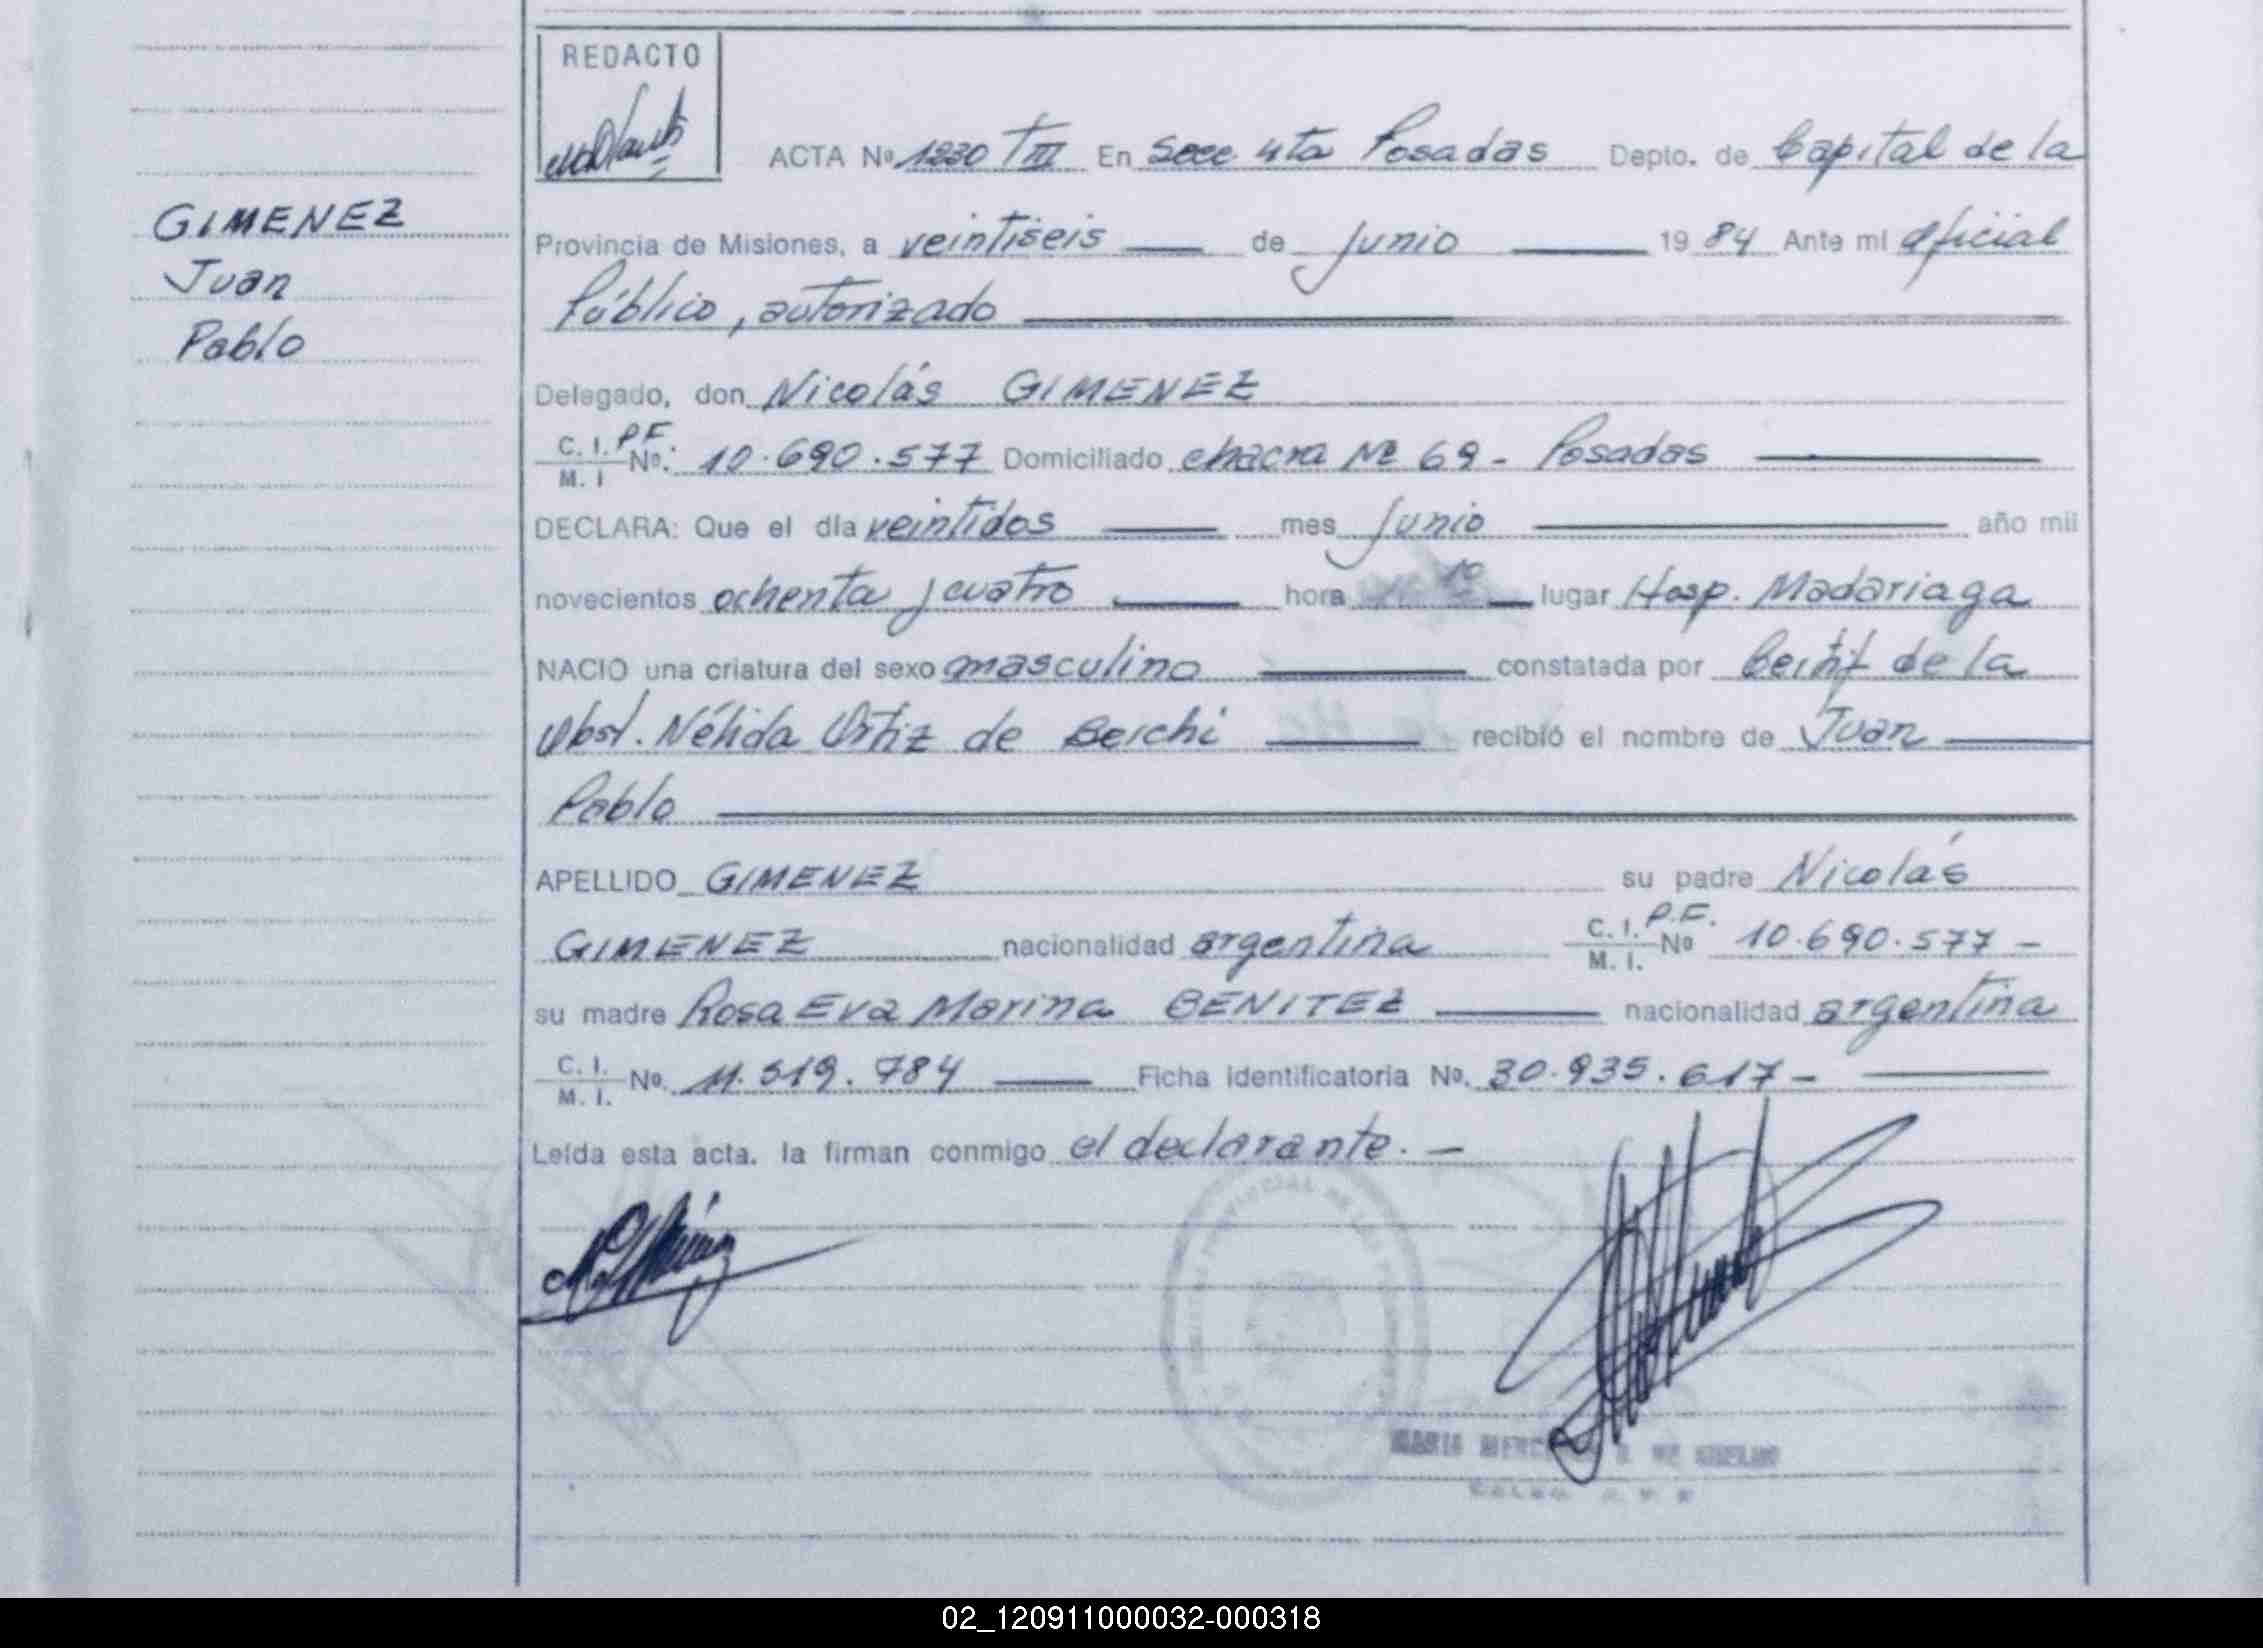 REDACTO
ACTA Nº 1230 TIII En Secc 4ta Posadas Depto. de Capital de la
GIMENEZ
Juan
Pablo
Provincia de Misiones, a veintiseis de junio 1984 Ante mi oficial
Público, autorizado
Delegado, don Nicolás GIMENEZ
C. I. P.F.
M. I Nº. 10.690.577 Domiciliado chacra Nº 69 - Posadas
DECLARA: Que el día veintidos mes junio año mil
novecientos ochenta y cuatro hora 10 lugar Hosp. Madariaga
NACIO una criatura del sexo masculino constatada por Certif de la
Obst. Nélida Ortiz de Berchi recibió el nombre de Juan
Pablo
APELLIDO GIMENEZ su padre Nicolás
GIMENEZ nacionalidad argentina C. I. P.F. M. I. Nº 10.690.577 -
su madre Rosa Eva Marina BENITEZ nacionalidad argentina
C. I. M. I. Nº. 11.519.784 Ficha identificatoria Nº. 30.935.617 -
Leída esta acta. la firman conmigo el declarante. -
MARIA
02_120911000032-000318